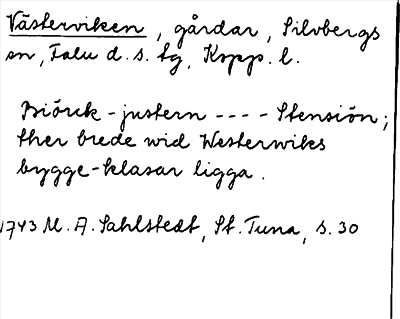 Västerviken, gårdar, Silvbergs
sn, Falu d.s. tg, Kopp. l.
Biörck-justern ---- Stensiön;
ther brede wid Westerwiks
bygge-klasar ligga.
1743 M. A. Sahlstedt, St. Tuna, s. 30